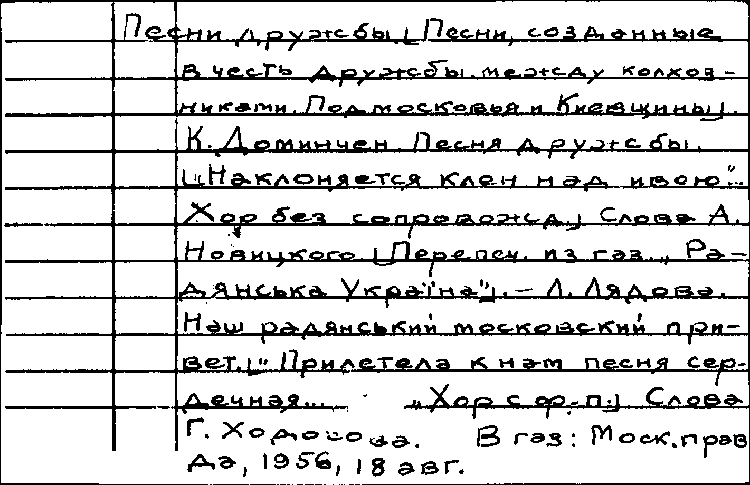 Песни дружбы [Песни, созданные
в честь дружбы между колхоз-
никами Подмосковья и Киевщины].
К. Доминчен. Песня дружбы.
["Наклоняется клен над ивою"...
Хор без сопровожд.] Слова А.
Новицкого. [Перепеч. из газ. „Ра-
дянська Україна"]. – Л. Лядова.
Наш радянський московский при-
вет. [„Прилетела к нам песня сер-
дечная... „Хор с ф.-п.] Слова
Г. В газ: Моск. прав
да, 1956, 18 авг.